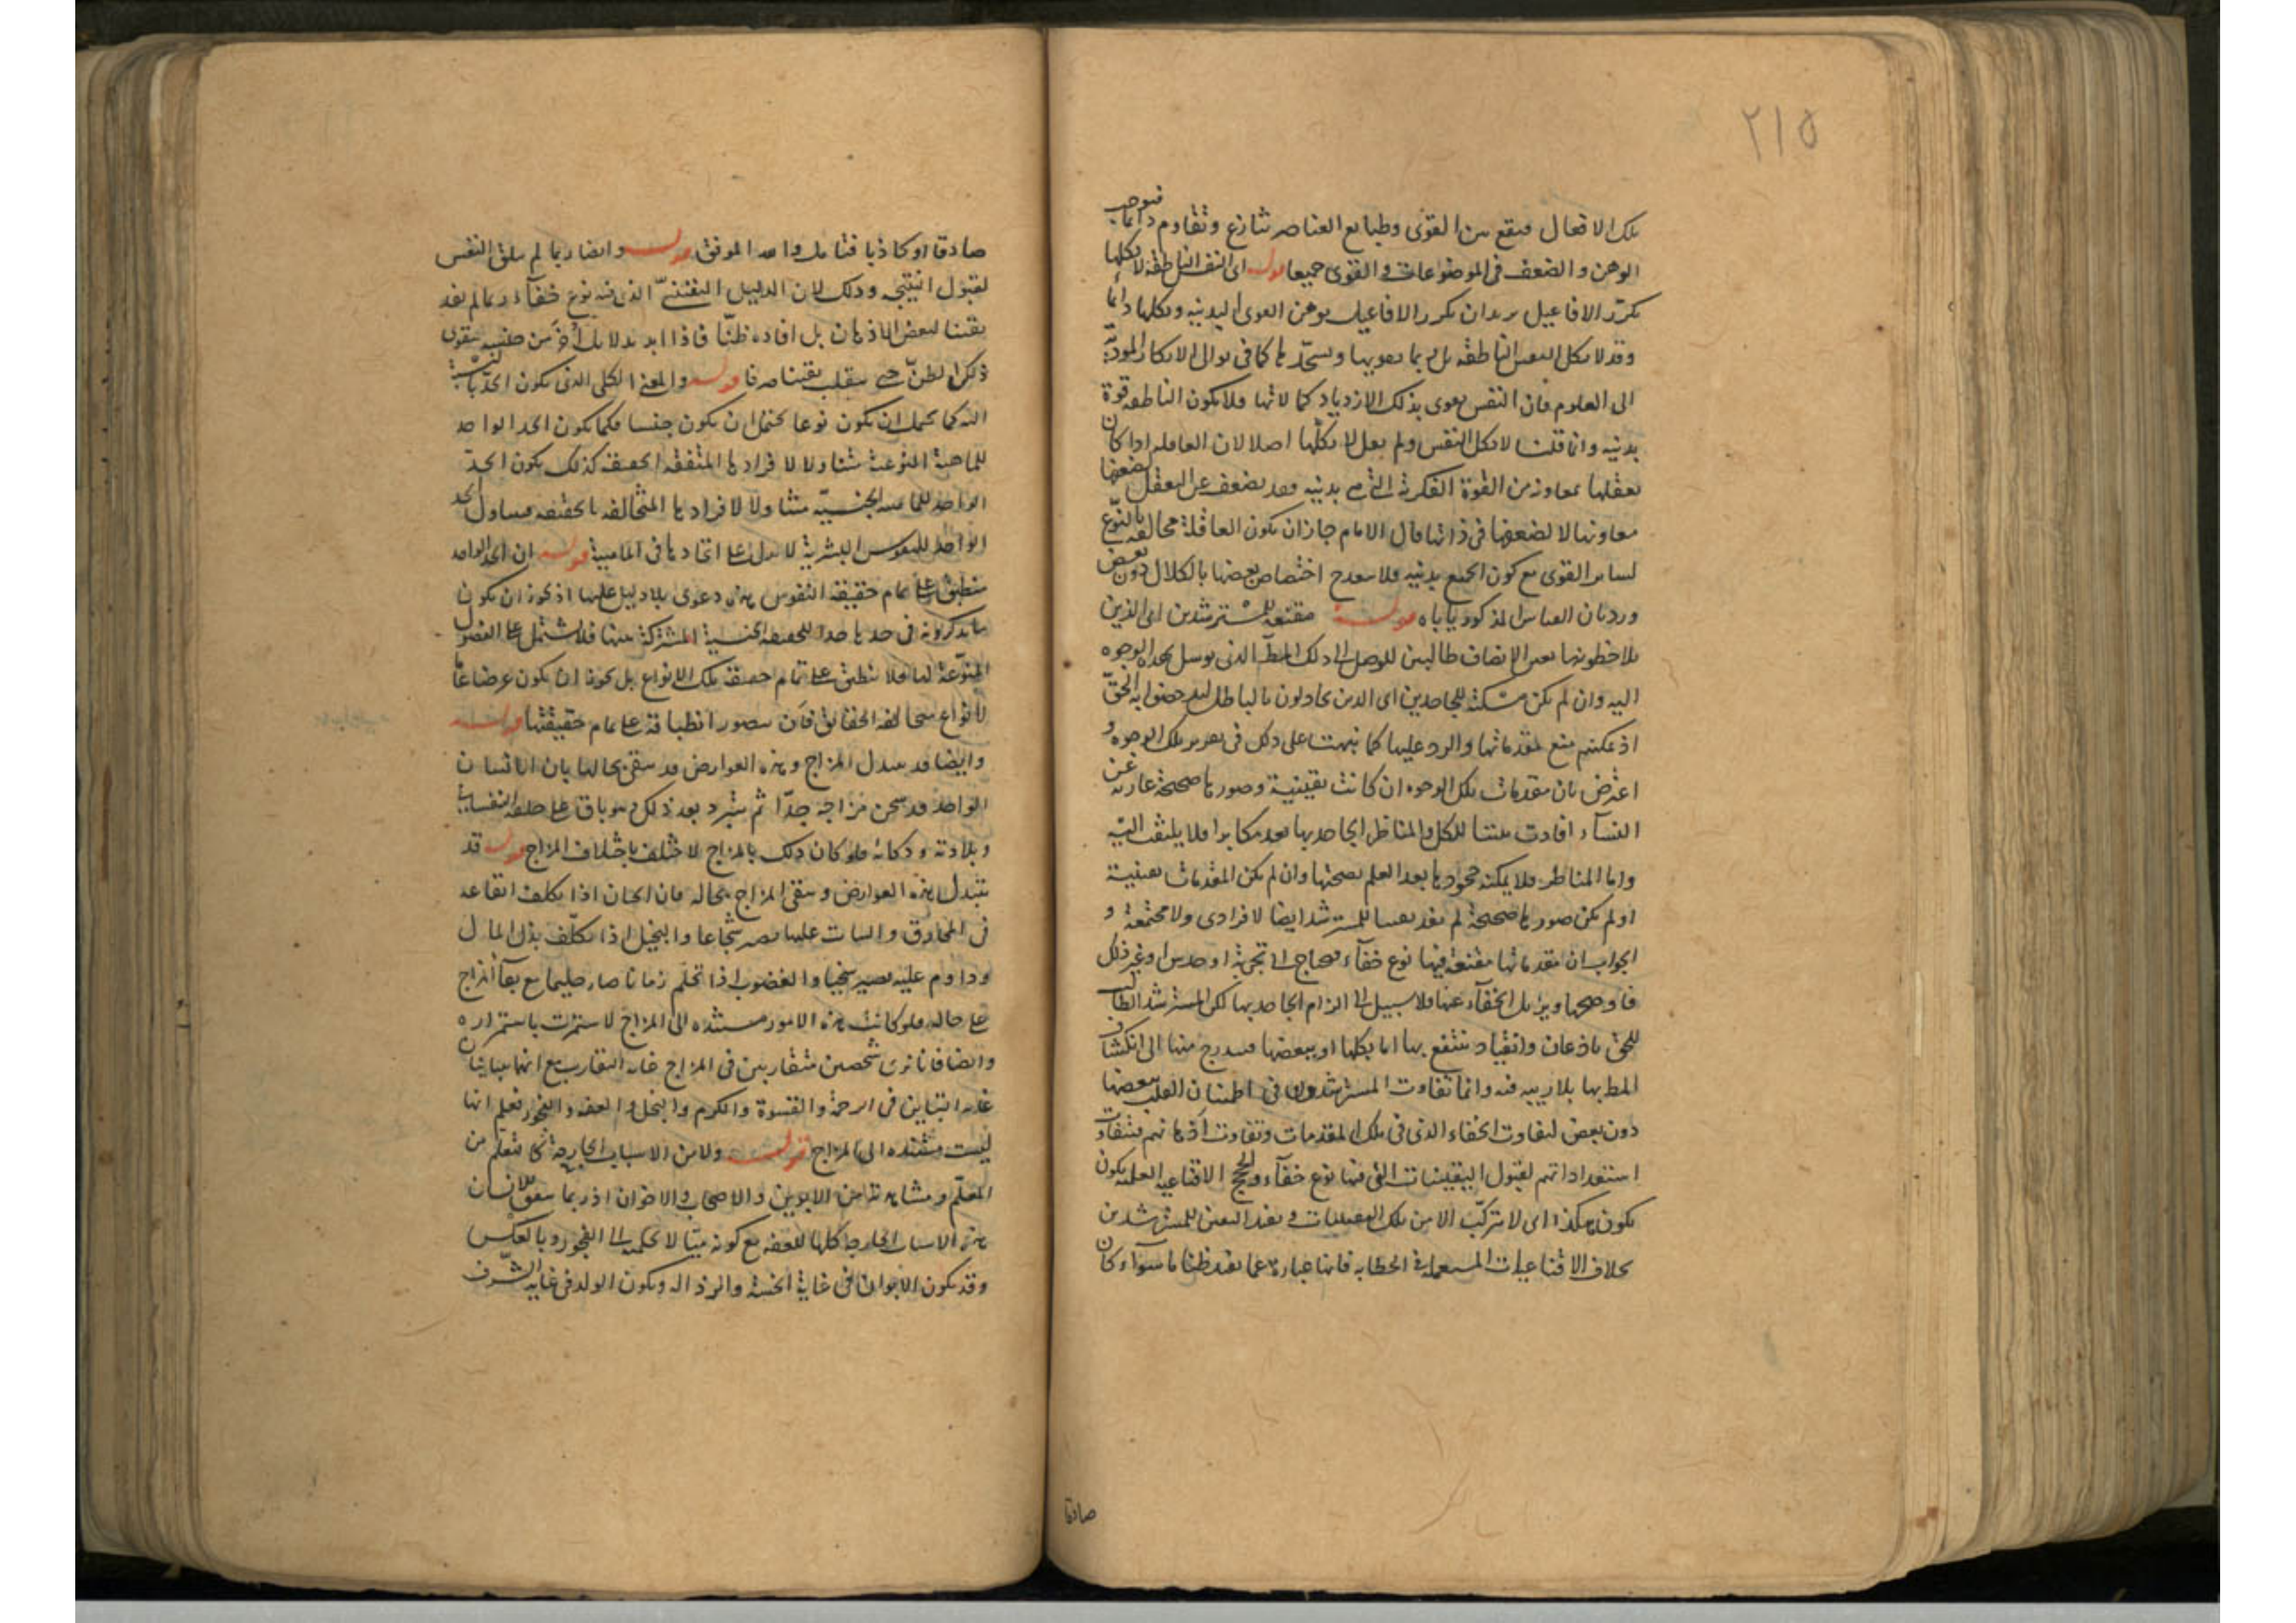 ٢١٥
تلك الافعال فيقع بين القوى وطبايع العناصر تنازع وتقاوم دائما فيوجب
الوهن والضعف فى الموضوعات والقوى جميعا قوله اى النفس الناطقة لا يكلها
تكرّر الافاعيل يريد ان تكرر الافاعيل يوهن القوى البدنيه ويكلها دائما
وقد لا يكل النفس الناطقه بل ربما يقويها ويشحذها كما فى توالى الافكار المودّية
الى العلوم فان النفس يقوى بذلك الازدياد كمالاتها فلا يكون الناطقه قوة
بدنيه وانما قلنا لا يكل النفس ولم يقل لا يكلّها اصلا لان العاقله اذا كان
تعقلها بمعاونة من القوة الفكرية التى هى بدنيه وقد يضعف عن التعقل لضعف
معاونها لا لضعفها فى ذاتها قال الامام جاز ان يكون العاقلة مخالفه بالنوع
لساير القوى مع كون الجميع بدنيه فلا يبعد اختصاص بعضها بالكلال دون بعض
ورد بان القياس المذكور ياباه قوله مقنعة للمسترشدين اى الذين
يلاحظونها بعين الانصاف طالبين للوصول الى ذلك المط الذى يوسل بهذه الوجوه
اليه وان لم يكن مسكتة للجاحدين اى الذين يجادلون بالباطل ليدحضوا به الحقّ
اذ يمكنهم منع مقدماتها والرد عليها كما نبهت على ذلك فى تقرير تلك الوجوه و
اعترض بان مقدمات تلك الوجوه ان كانت يقينية وصورها صحيحة عارية عن
الفساد افادت يقينا للكل والمناظر الجاحد بها يعد مكابرا فلا يلتفت اليه
واما المناظر فلا يمكنه جحودها بعد العلم بصحتها وان لم يكن المقدمات يقينية
او لم يكن صورها صحيحة لم يفد يقينا للمسترشد ايضا لا فرادى ولا مجتمعة و
الجواب ان مقدماتها مقنعة فيها نوع خفآء يحتاج الى تجربة او حدس او غير ذلك
فاوضحها ويزيل الخفآء عنها فلا سبيل الى الزام الجاحد بها لكن المسترشد الطالب
للحق باذعان وانقياد ينتفع بها اما بكلها او ببعضها فيتدرج منها الى انكشاف
المط بها بلا ريبه فيه وانما تفاوت المسترشدون فى اطمينان القلب ببعضها
دون بعض لتفاوت الخفاء الذى فى تلك المقدمات وتفاوت اذهانهم بتفاوت
استعداداتهم لقبول اليقينيات التى فيها نوع خفآء والحجج الاقناعيه العلميه يكون
يكون هكذا اى لا يتركّب الا من تلك المقدمات ويفيد اليقين للمسترشدين
بخلاف الاقناعيات المستعمله فى الخطابه فانها عبارة عما يفيد ظنا ما سوآء كان
صادقا
صادقا او كاذبا فتامل والله الموفق قوله وايضا ربما لم يتلق النفس
لقبول النتيجه وذلك لان الدليل اليقينىّ الذى فيه نوع خفآء ربما لم يفد
يقينا لبعض الاذهان بل افاده ظنّا فاذا ايد بدلايل أُخَر من جنسه يتقوى
ذلك الظنّ حتى ينقلب يقينا صرفا قوله والمعنى الكلى الذى يكون الحدّ بالنسبة
اليه كما يحتمل ان يكون نوعا يحتمل ان يكون جنسا فكما يكون الحد الواحد
للماهية النوعية متناولا لافرادها المتفقه الحقيقه كذلك يكون الحدّ
الواحد للماهيه الجنسيّه متناولا لافرادها المتخالفه بالحقيقه فتناول الحد
الواحد للنفوس البشرية لا يدل على اتحادها فى الماهية قوله ان الحد الواحد
منطبق على تمام حقيقة النفوس هذه دعوى بلا دليل عليها اذ يجوز ان يكون
ما يذكرونه فى حدها حدا للحقيقه الجنسية المشتركة بينها فلا يشتمل على الفصول
المنوّعة لها فلا ينطبق على تمام حقيقة تلك الانواع بل يجوز ان يكون عرضا عامّا
لانواع متخالفه الحقائق فانى يتصور انطباقه على تمام حقيقتها قوله
وايضا قد يتبدل المزاج وهذه العوارض قد يبقى بحالها بان الانسان
الواحد قد يسخن مزاجه جدّا ثم يبرد بعد ذلك وهو باق على خلقه النفسانى
وبلادته وذكائه فلو كان ذلك بالمزاج لاختلف باختلاف المزاج قوله قد
يتبدل هذه العوارض ويبقى المزاج بحاله فان الجبان اذا تكلف ايقاعه
فى المخاوف والثبات عليها يصير شجاعا والبخيل اذا تكلّف بذل المال
وداوم عليه يصير سخيا والغضوب اذا تحلّم زمانا صار حليما مع بقآء المزاج
على حاله فلو كانت هذه الامور مستنده الى المزاج لاستمرت باستمراره
وايضا فانا نرى شخصين متقاربين فى المزاج غاية التقارب مع انهما متباينان
غاية التباين فى الرحمة والقسوة والكرم والبخل والعفه والفجور فعلم انها
ليست مستنده الى المزاج قوله ولا من الاسباب الخارجة كالتعلّم من
المعلّم ومشاهدة الابوين والاصحاب والاخوان اذ ربما يتفق لانسان
هذه الاسباب الخارجه كلها للعفه مع كونه ميّالا بكليته الى الفجور وبالعكس
وقد يكون الابوان فى غاية الخسّة والرذاله ويكون الولد فى غاية الشرف